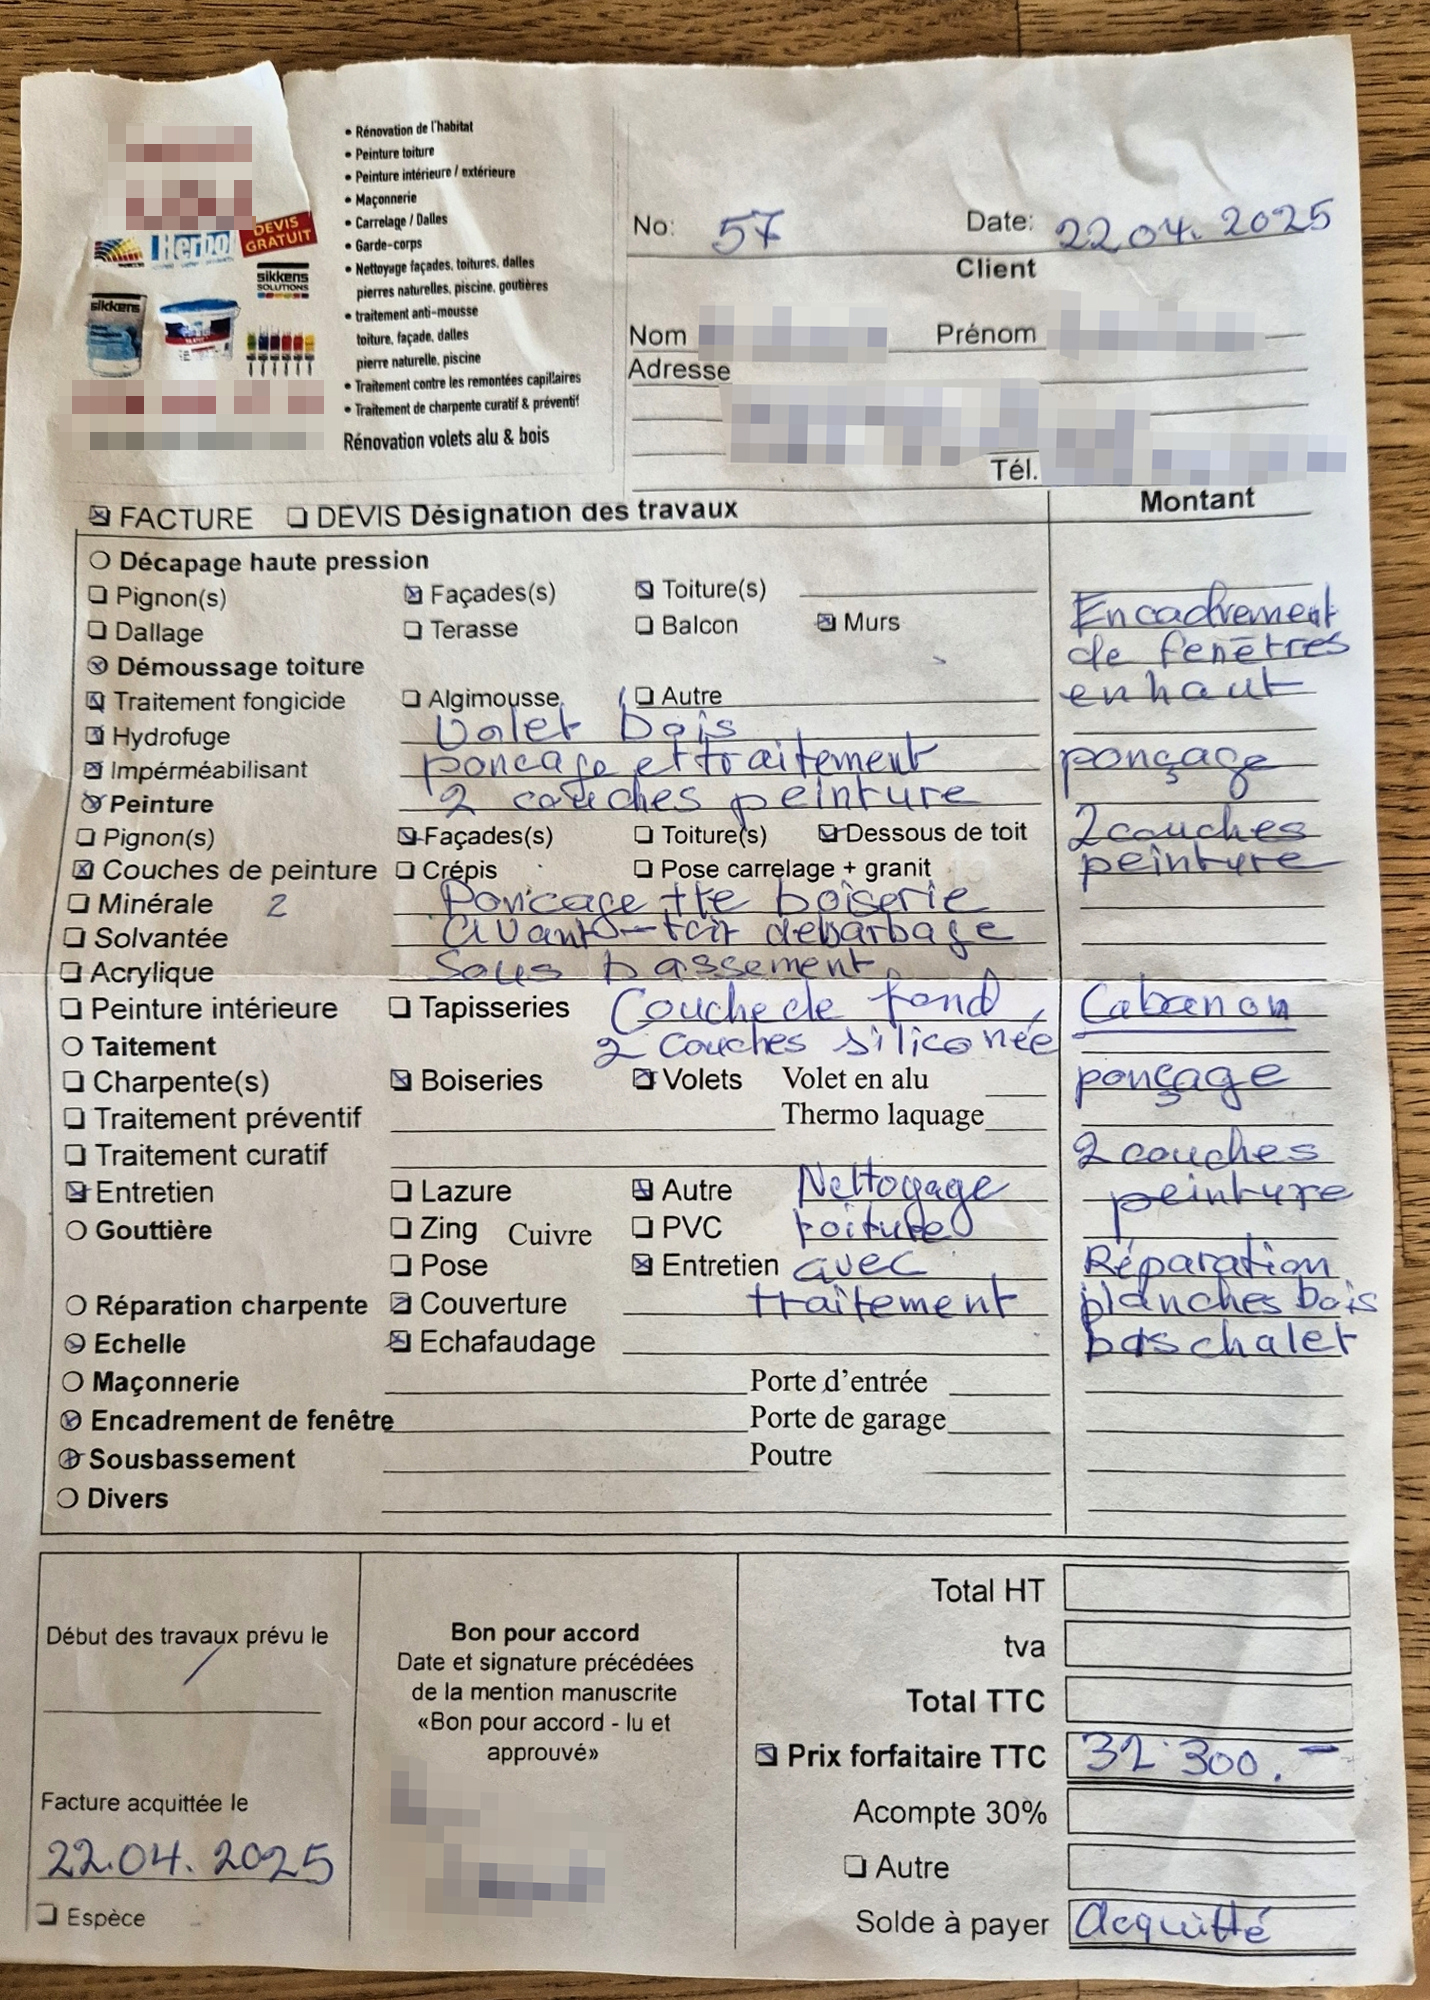 DEVIS
GRATUIT
Herbol
sikkens
SOLUTIONS
sikkens
• Rénovation de l'habitat
• Peinture toiture
• Peinture intérieure / extérieure
• Maçonnerie
• Carrelage / Dalles
• Garde-corps
• Nettoyage façades, toitures, dalles
pierres naturelles, piscine, goutières
• traitement anti-mousse
toiture, façade, dalles
pierre naturelle, piscine
• Traitement contre les remontées capillaires
• Traitement de charpente curatif & préventif
Rénovation volets alu & bois
No: 57 Date: 22.04.2025
Client
Nom Prénom
Adresse
Tél.
FACTURE DEVIS Désignation des travaux Montant
Décapage haute pression
Pignon(s) Façades(s) Toiture(s) Encadrement
Dallage Terasse Balcon Murs de fenêtres
Démoussage toiture
Traitement fongicide Algimousse Autre en haut
Hydrofuge Volet bois
Impérméabilisant poncage et traitement ponçage
Peinture 2 couches peinture
Pignon(s) Façades(s) Toiture(s) Dessous de toit 2 couches
Couches de peinture Crépis Pose carrelage + granit peinture
Minérale 2 Poncage tte boiserie
Solvantée avant-toit debarbage
Acrylique Sous bassement
Peinture intérieure Tapisseries Couche de fond, Cabanon
Taitement 2 couches siliconée
Charpente(s) Boiseries Volets Volet en alu ponçage
Traitement préventif Thermo laquage
Traitement curatif 2 couches
Entretien Lazure Autre Nettoyage peinture
Gouttière Zing Cuivre PVC toiture
Pose Entretien avec Réparation
Réparation charpente Couverture traitement planches bois
Echelle Echafaudage bas chalet
Maçonnerie Porte d'entrée
Encadrement de fenêtre Porte de garage
Sousbassement Poutre
Divers
Total HT
Début des travaux prévu le
/
Bon pour accord
Date et signature précédées
de la mention manuscrite
«Bon pour accord - lu et
approuvé»
tva
Total TTC
Prix forfaitaire TTC 32'300.-
Facture acquittée le
22.04.2025
Espèce
Acompte 30%
Autre
Solde à payer Acquitté